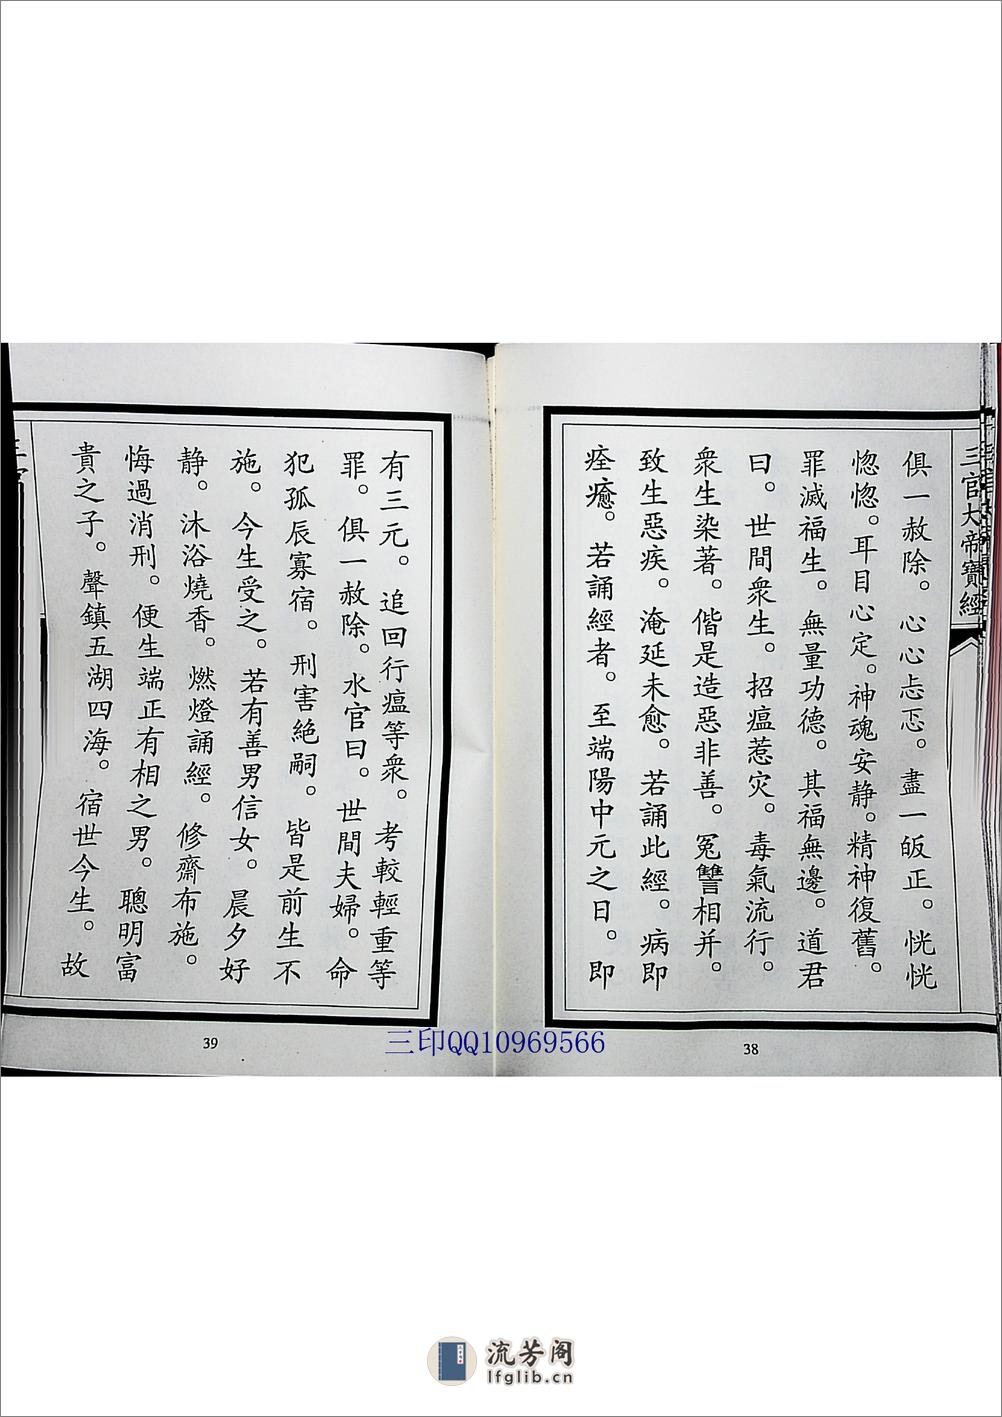 三官大帝寶經
俱一赦除。心心忐忑。盡一皈正。恍恍
惚惚。耳目心定。神魂安静。精神復舊。
罪滅福生。無量功德。其福無邊。道君
曰。世間衆生。招瘟惹灾。毒氣流行。
衆生染著。偕是造惡非善。冤讐相并。
致生惡疾。淹延未愈。若誦此經。病即
痊癒。若誦經者。至端陽中元之日。即
38
有三元。追回行瘟等衆。考較輕重等
罪。俱一赦除。水官曰。世間夫婦。命
犯孤辰寡宿。刑害絶嗣。皆是前生不
施。今生受之。若有善男信女。晨夕好
静。沐浴燒香。燃燈誦經。修齋布施。
悔過消刑。便生端正有相之男。聰明富
貴之子。聲鎮五湖四海。宿世今生。故
39
三印QQ10969566
流芳阁
lfglib.cn